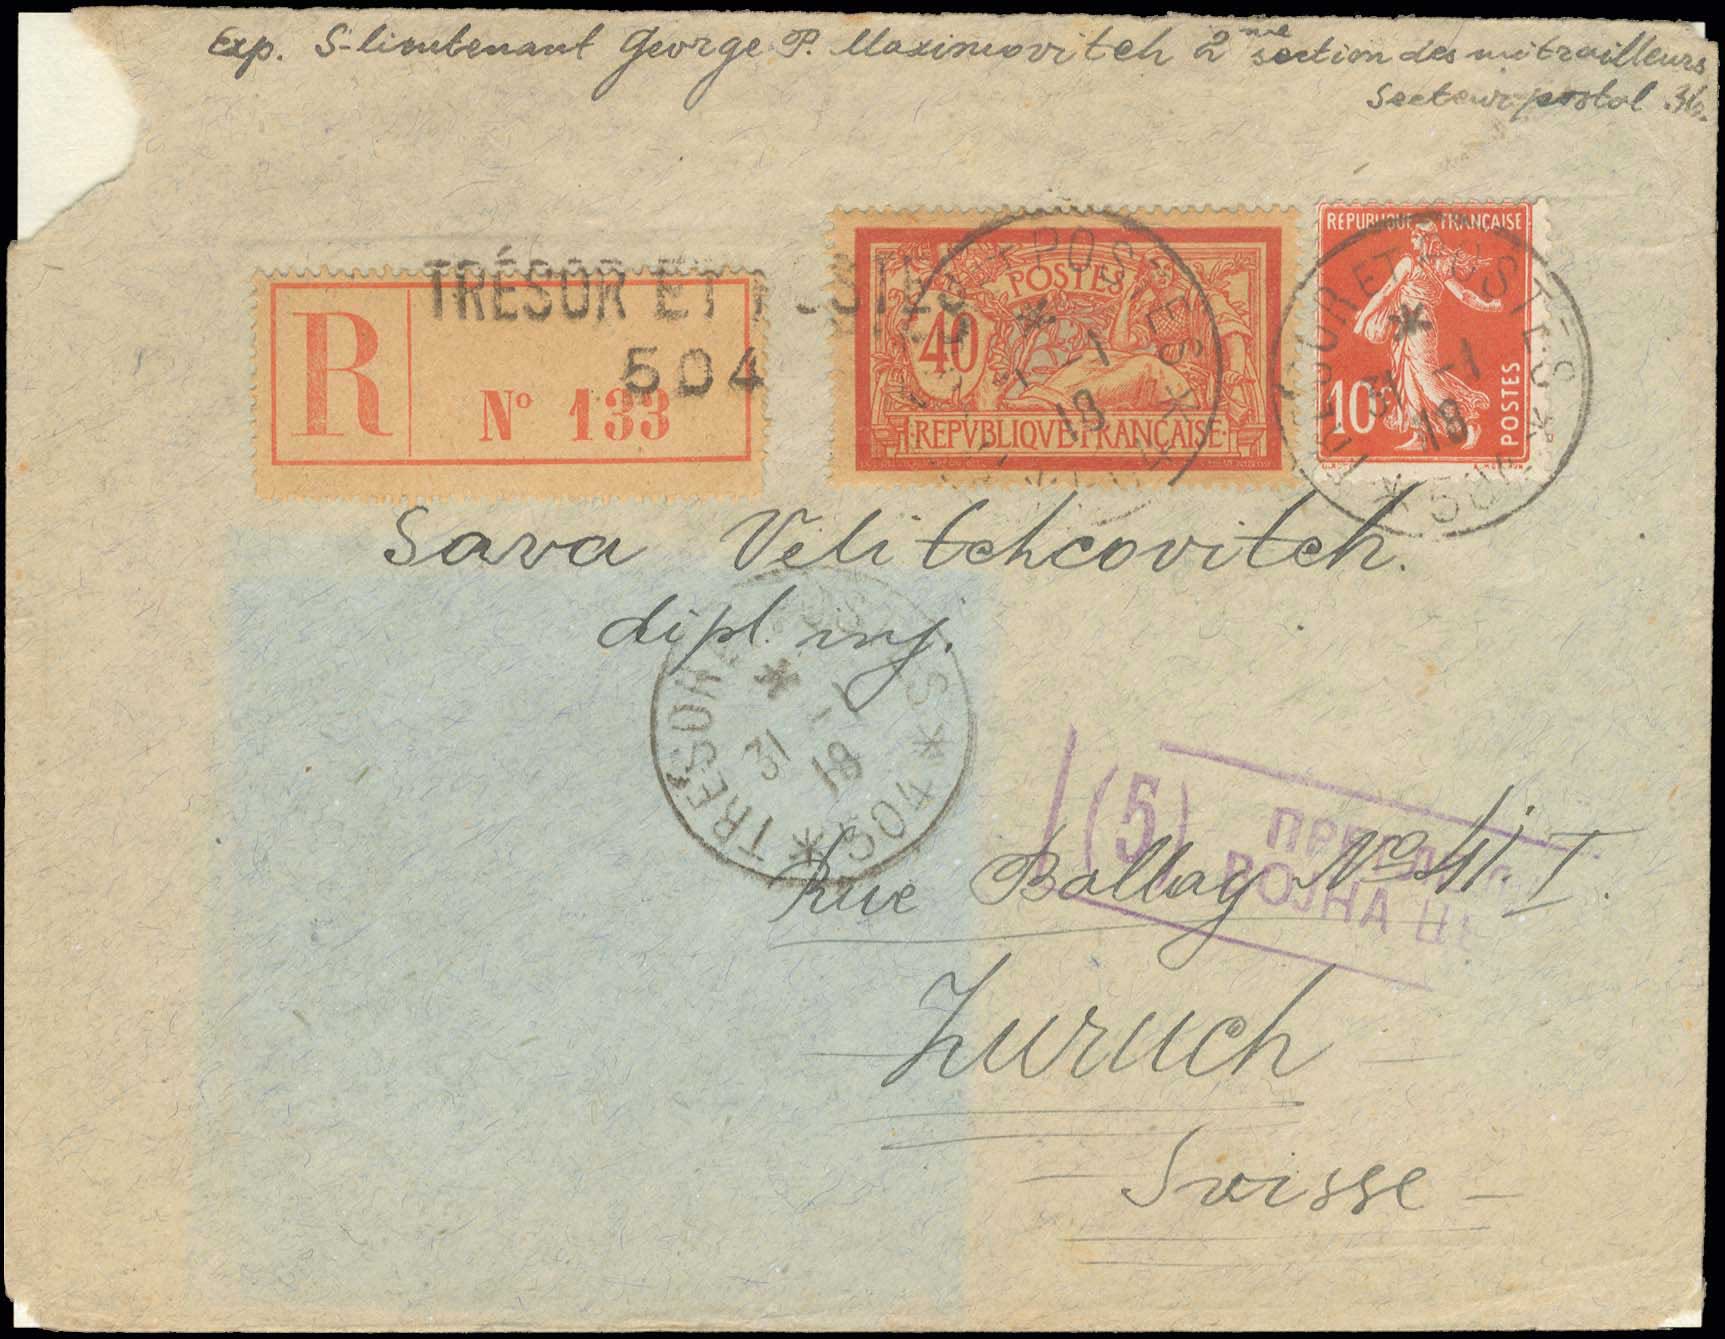 Exp. S-lieutenant George P. Maximovitch 2me section des mitrailleurs
Secteur postal 36.
TRÉSOR ET POSTES
504
R
No 133
POSTES
40
REPVBLIQVE FRANÇAISE
TRESOR ET POSTES
1-1
18
REPUBLIQUE FRANÇAISE
10c
POSTES
TRESOR ET POSTES
31 -1
18
504
Sava Velitchcovitch.
dipl. inj.
TRESOR POSTES
31 -1
18
504
(5)
ВОЈНА ЦЕ
Rue Bollay No 41. I.
Zuruch
Svisse